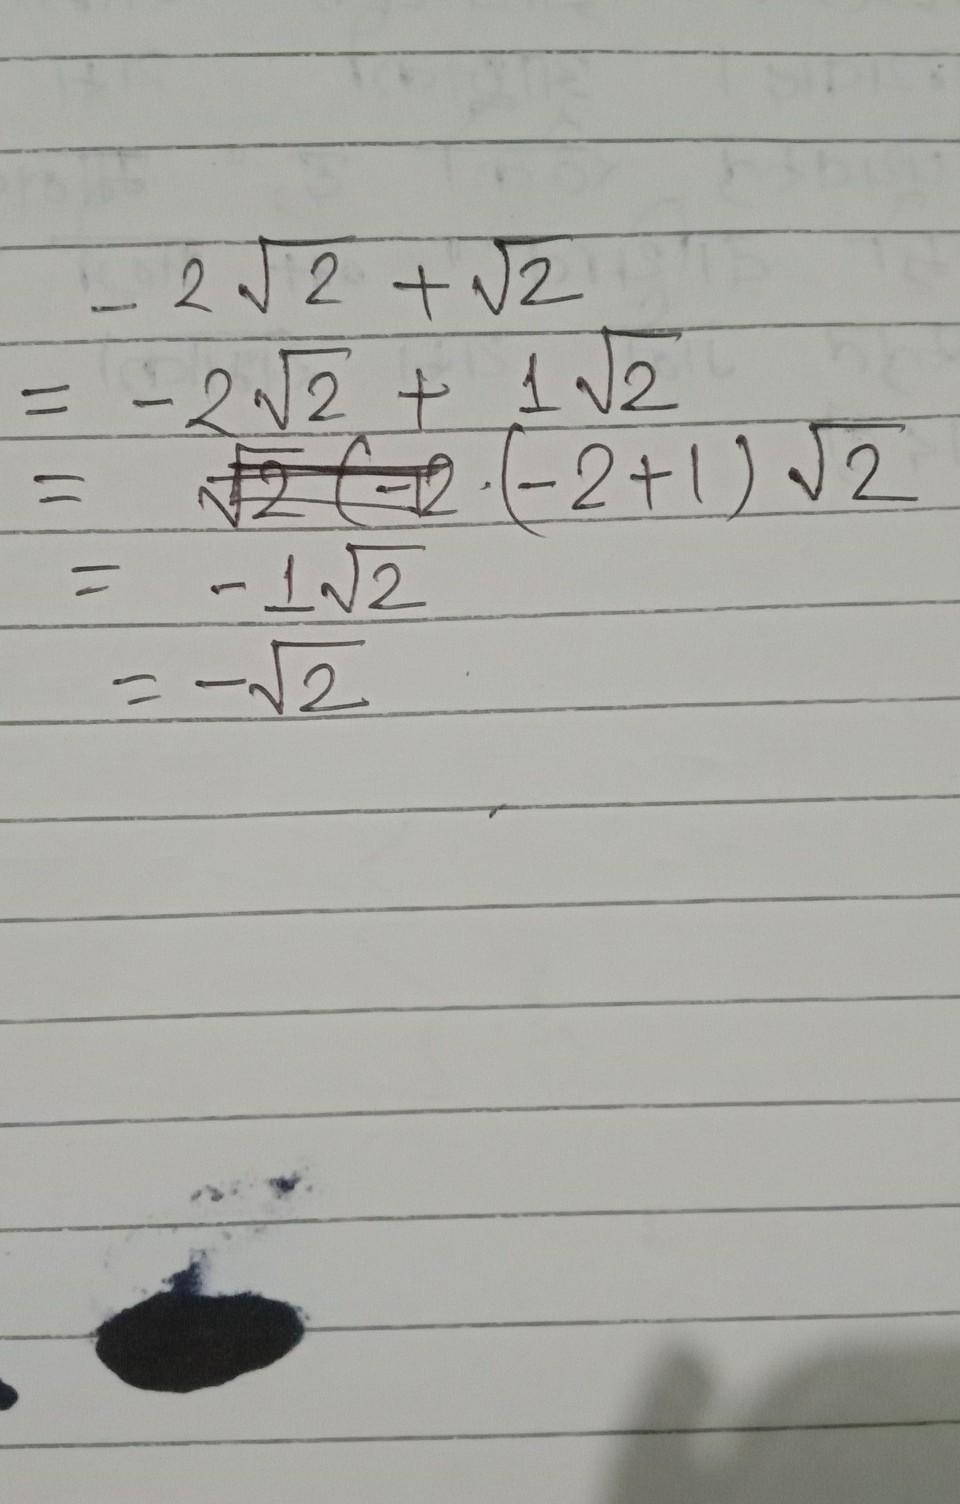 - 2√2 + √2
= - 2√2 + 1√2
= (-2+1)√2
= - 1√2
= -√2